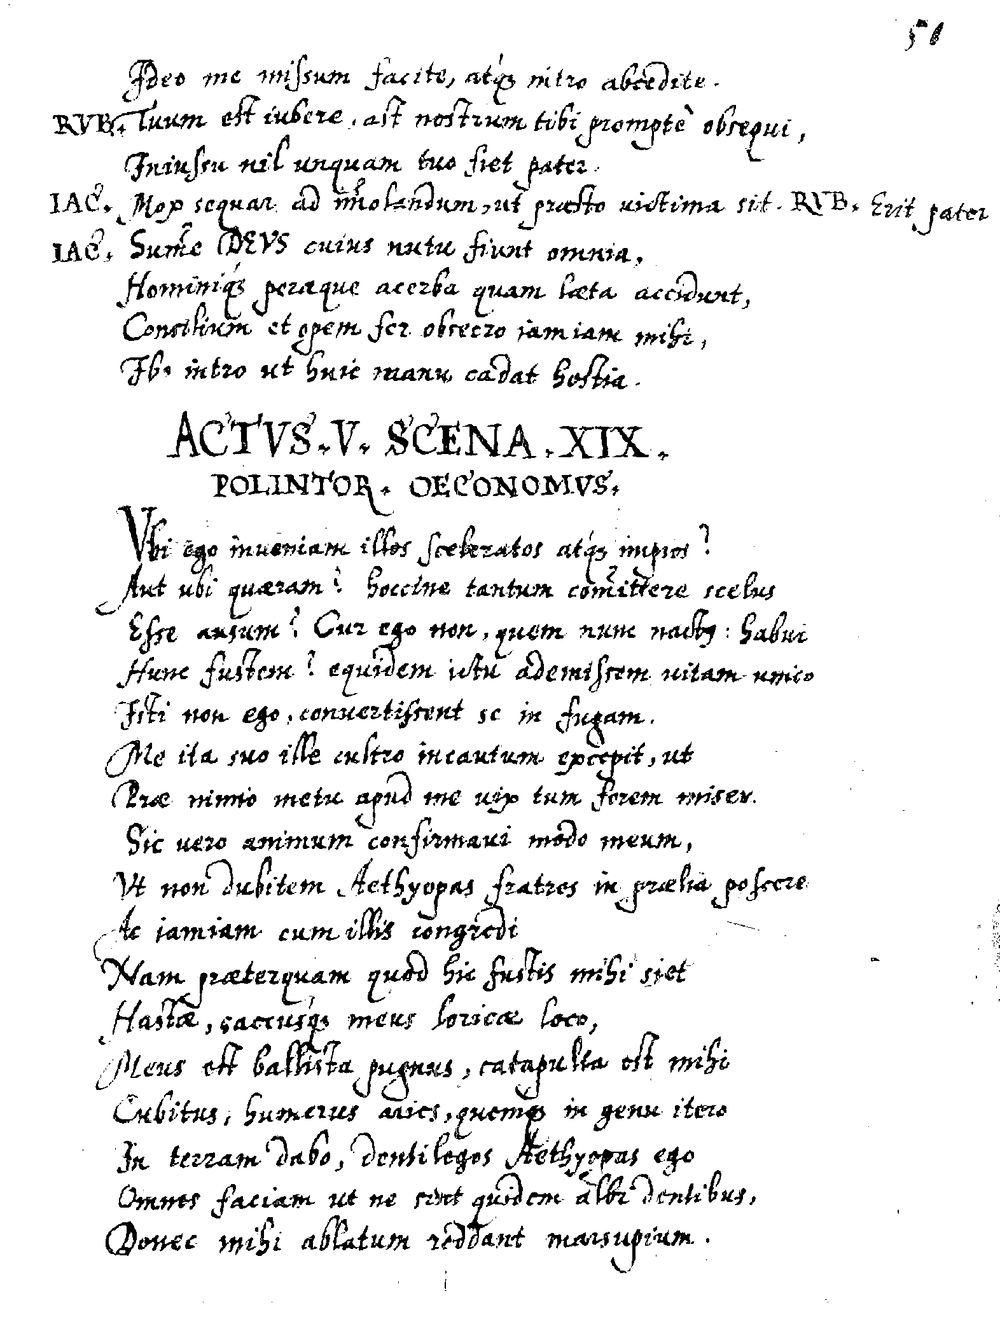 51
Ideo me missum facite, atq́ꝫ intro abcedite.
RVB. Tuum est iubere, ast nostrum tibi promptè obsequi,
Iniussu nil unquam tuo fiet pater.
IAC. Mox sequar ad im̃olandum, ut præsto uictima sit. RVB. Erit pater
IAC. Sum̃e DEVS cuius nutu fiunt omnia,
Hominiq́ꝫ peræque acerba quam læta accidunt,
Consilium et opem fer obsecro iamiam mihi,
Ibo intro ut huic manu cadat hostia.
ACTVS. V. SCENA. XIX.
POLINTOR. OECONOMVS.
Vbi ego inueniam illos sceleratos atq́ꝫ impios?
Aut ubi quæram? hoccine tantum com̃ittere scelus
Esse ausum? Cur ego non, quem nunc nactꝰ: habui
Hunc fustem? equidem ictu ademissem uitam unico
Isti non ego, conuertissent se in fugam.
Me ita suo ille cultro incautum excepit, ut
Præ nimio metu apud me uix tum forem miser.
Sic uero animum confirmaui modo meum,
Vt non dubitem Aethyopas fratres in prælia poscere
Ac iamiam cum illis congredi
Nam præterquam quod hic fustis mihi siet
Hastæ, saccusq́ꝫ meus loricæ loco,
Meus est ballista pugnus, catapulta est mihi
Cubitus, humerus aries, quemqꝫ in genu itero
In terram dabo, dentilegos Aethyopas ego
Omnes faciam ut ne sint quidem albi dentibus,
Donec mihi ablatum reddant marsupium.